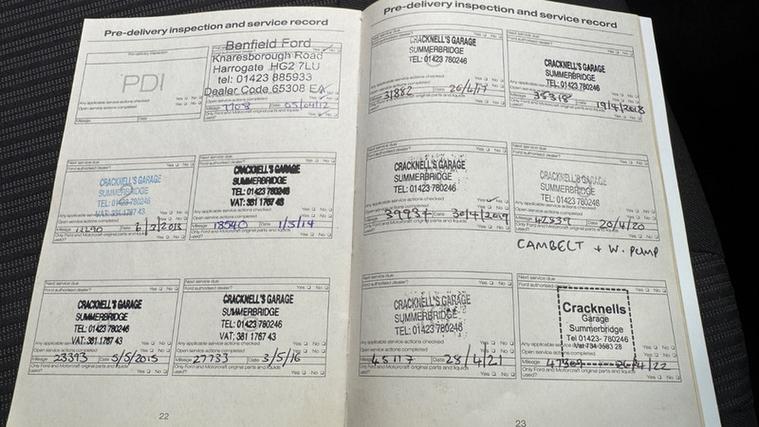 Pre-delivery inspection and service record
Pre-delivery inspection
PDI
Any applicable service actions checked
Yes No
Open service actions completed
Yes No
Mileage Date
Benfield Ford
Knaresborough Road
Harrogate HG2 7LU
tel: 01423 885933
Dealer Code 65308 EA
Open service actions completed
Mileage Date 05/04/12
Next service due
Ford authorised dealer? Yes No
CRACKNELL'S GARAGE
SUMMERBRIDGE
TEL: 01423 780246
VAT: 381 1767 43
Any applicable service actions checked
Open service actions completed
Mileage Date
Only Ford and Motorcraft original parts and liquids
used? Yes No
Next service due
CRACKNELL'S GARAGE
SUMMERBRIDGE
TEL: 01423 780246
VAT: 381 1767 43
Any applicable service actions checked
Open service actions completed
Mileage 18540 Date 1/5/14
Only Ford and Motorcraft original parts and liquids
used? Yes No
Next service due
Ford authorised dealer? Yes No
CRACKNELL'S GARAGE
SUMMERBRIDGE
TEL: 01423 780246
VAT: 381 1767 43
Any applicable service actions checked
Open service actions completed
Mileage 23393 Date 5/5/2015
Only Ford and Motorcraft original parts and liquids
used? Yes No
Next service due
Ford authorised dealer? Yes No
CRACKNELL'S GARAGE
SUMMERBRIDGE
TEL: 01423 780246
VAT: 381 1767 43
Any applicable service actions checked
Open service actions completed
Mileage 27733 Date 3/5/16
Only Ford and Motorcraft original parts and liquids
used? Yes No
22
Pre-delivery inspection and service record
CRACKNELL'S GARAGE
SUMMERBRIDGE
TEL: 01423 780246
Any applicable service actions checked
Open service actions completed
Mileage 31882 Date
Only Ford and Motorcraft original parts and liquids
used? Yes No
Next service due
CRACKNELL'S GARAGE
SUMMERBRIDGE
TEL: 01423 780246
Any applicable service actions checked
Open service actions completed
19/4/2018
Only Ford and Motorcraft original parts and liquids
used? Yes No
Next service due
CRACKNELL'S GARAGE
SUMMERBRIDGE
TEL: 01423 780246
Any applicable service actions checked
Open service actions completed
Mileage Date 30/4/2019
Only Ford and Motorcraft original parts and liquids
used? Yes No
Next service due
CRACKNELL'S GARAGE
SUMMERBRIDGE
TEL: 01423 780246
Any applicable service actions checked
Open service actions completed
Mileage Date 20/4/20
Only Ford and Motorcraft original parts and liquids
used? Yes No
CAMBELT + W. PUMP
Next service due
CRACKNELL'S GARAGE
SUMMERBRIDGE
TEL: 01423 780246
Any applicable service actions checked
Open service actions completed
Mileage 45117 Date 28/4/21
Only Ford and Motorcraft original parts and liquids
used? Yes No
Next service due
Ford authorised dealer? Yes No
Cracknells
Garage
Summerbridge
Tel 01423- 780246
Any applicable service actions checked
Open service actions completed
Mileage
Only Ford and Motorcraft original parts and liquids
used? Yes No
23